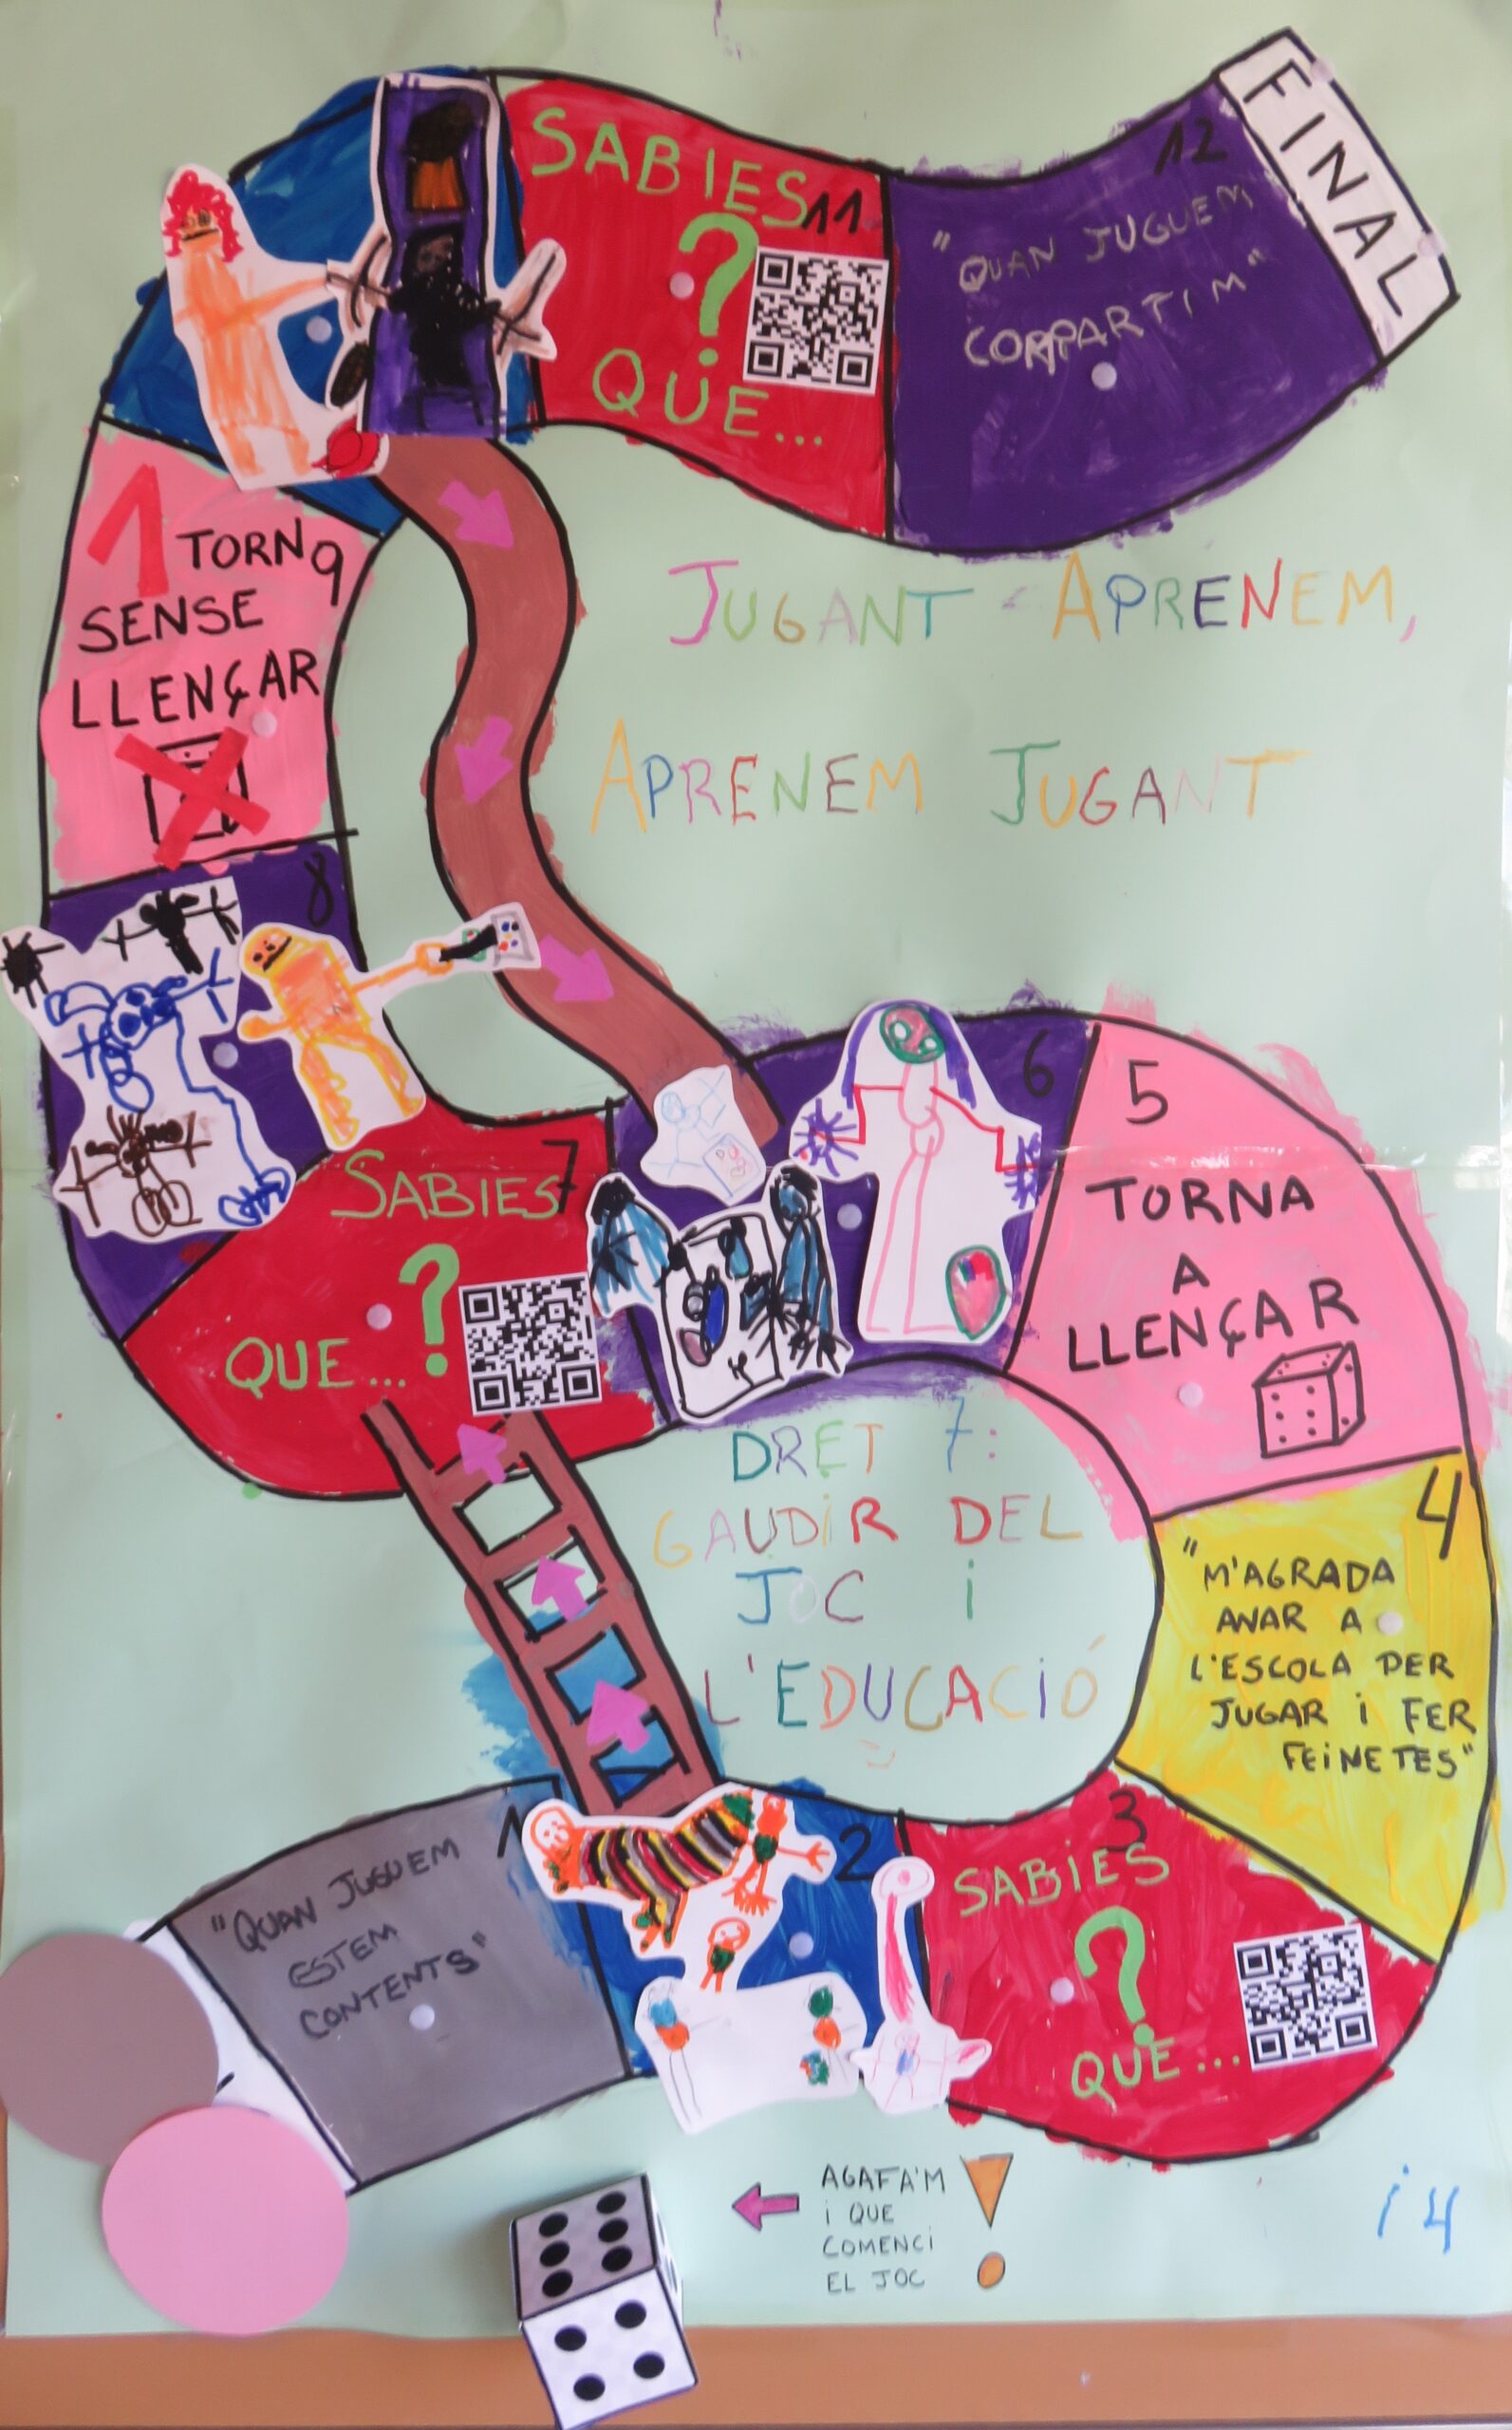 FINAL
12
"QUAN JUGUEM
COMPARTIM"
SABIES
11
?
QUE...
1 TORN
9
SENSE
LLENÇAR
JUGANT - APRENEM,
APRENEM JUGANT
8
7
SABIES
?
QUE...
6
5
TORNA
A
LLENÇAR
4
"M'AGRADA
ANAR A
L'ESCOLA PER
JUGAR i FER
FEiNETES"
DRET 7:
GAUDiR DEL
JOC i
L'EDUCACiÓ
3
SABiES
?
QUE...
2
1
"QUAN JUGUEM
ESTEM
CONTENTS"
AGAFA'M
i QUE
COMENCi
EL JOC
!
i4